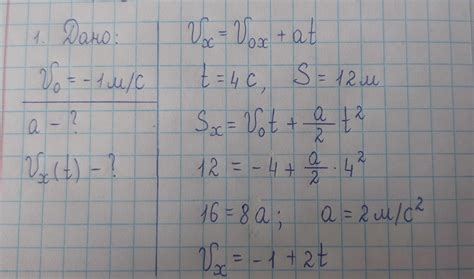 1. Дано:
V₀ = -1 м/с
a - ?
Vₓ(t) - ?
Vₓ = V₀ₓ + at
t = 4 с, S = 12 м
Sₓ = V₀t + a/2 t²
12 = -4 + a/2 · 4²
16 = 8a; a = 2 м/с²
Vₓ = -1 + 2t